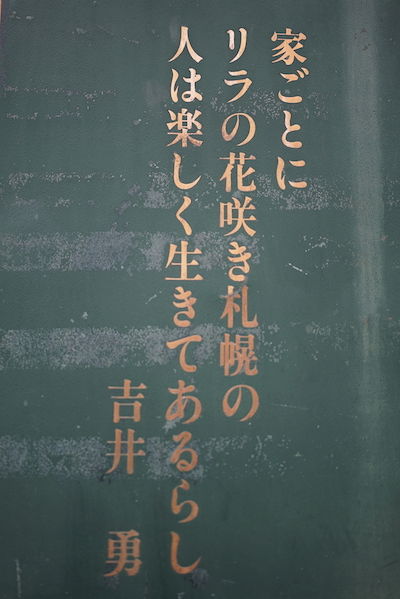 家ごとに
リラの花咲き札幌の
人は楽しく生きてあるらし
吉井 勇